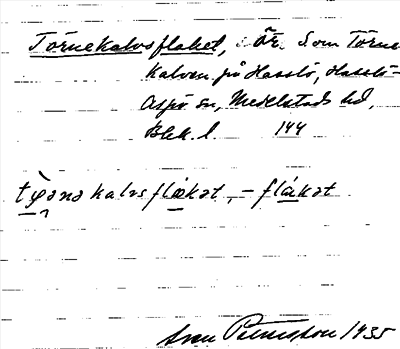 Törnekalvsflaket, i ör. Som Törne
kalven på Hasslö, Hasslö-
Aspö sn, Medelstads hd,
Blek. l. 144
kalvsflakət, – flakət
Sven 1935